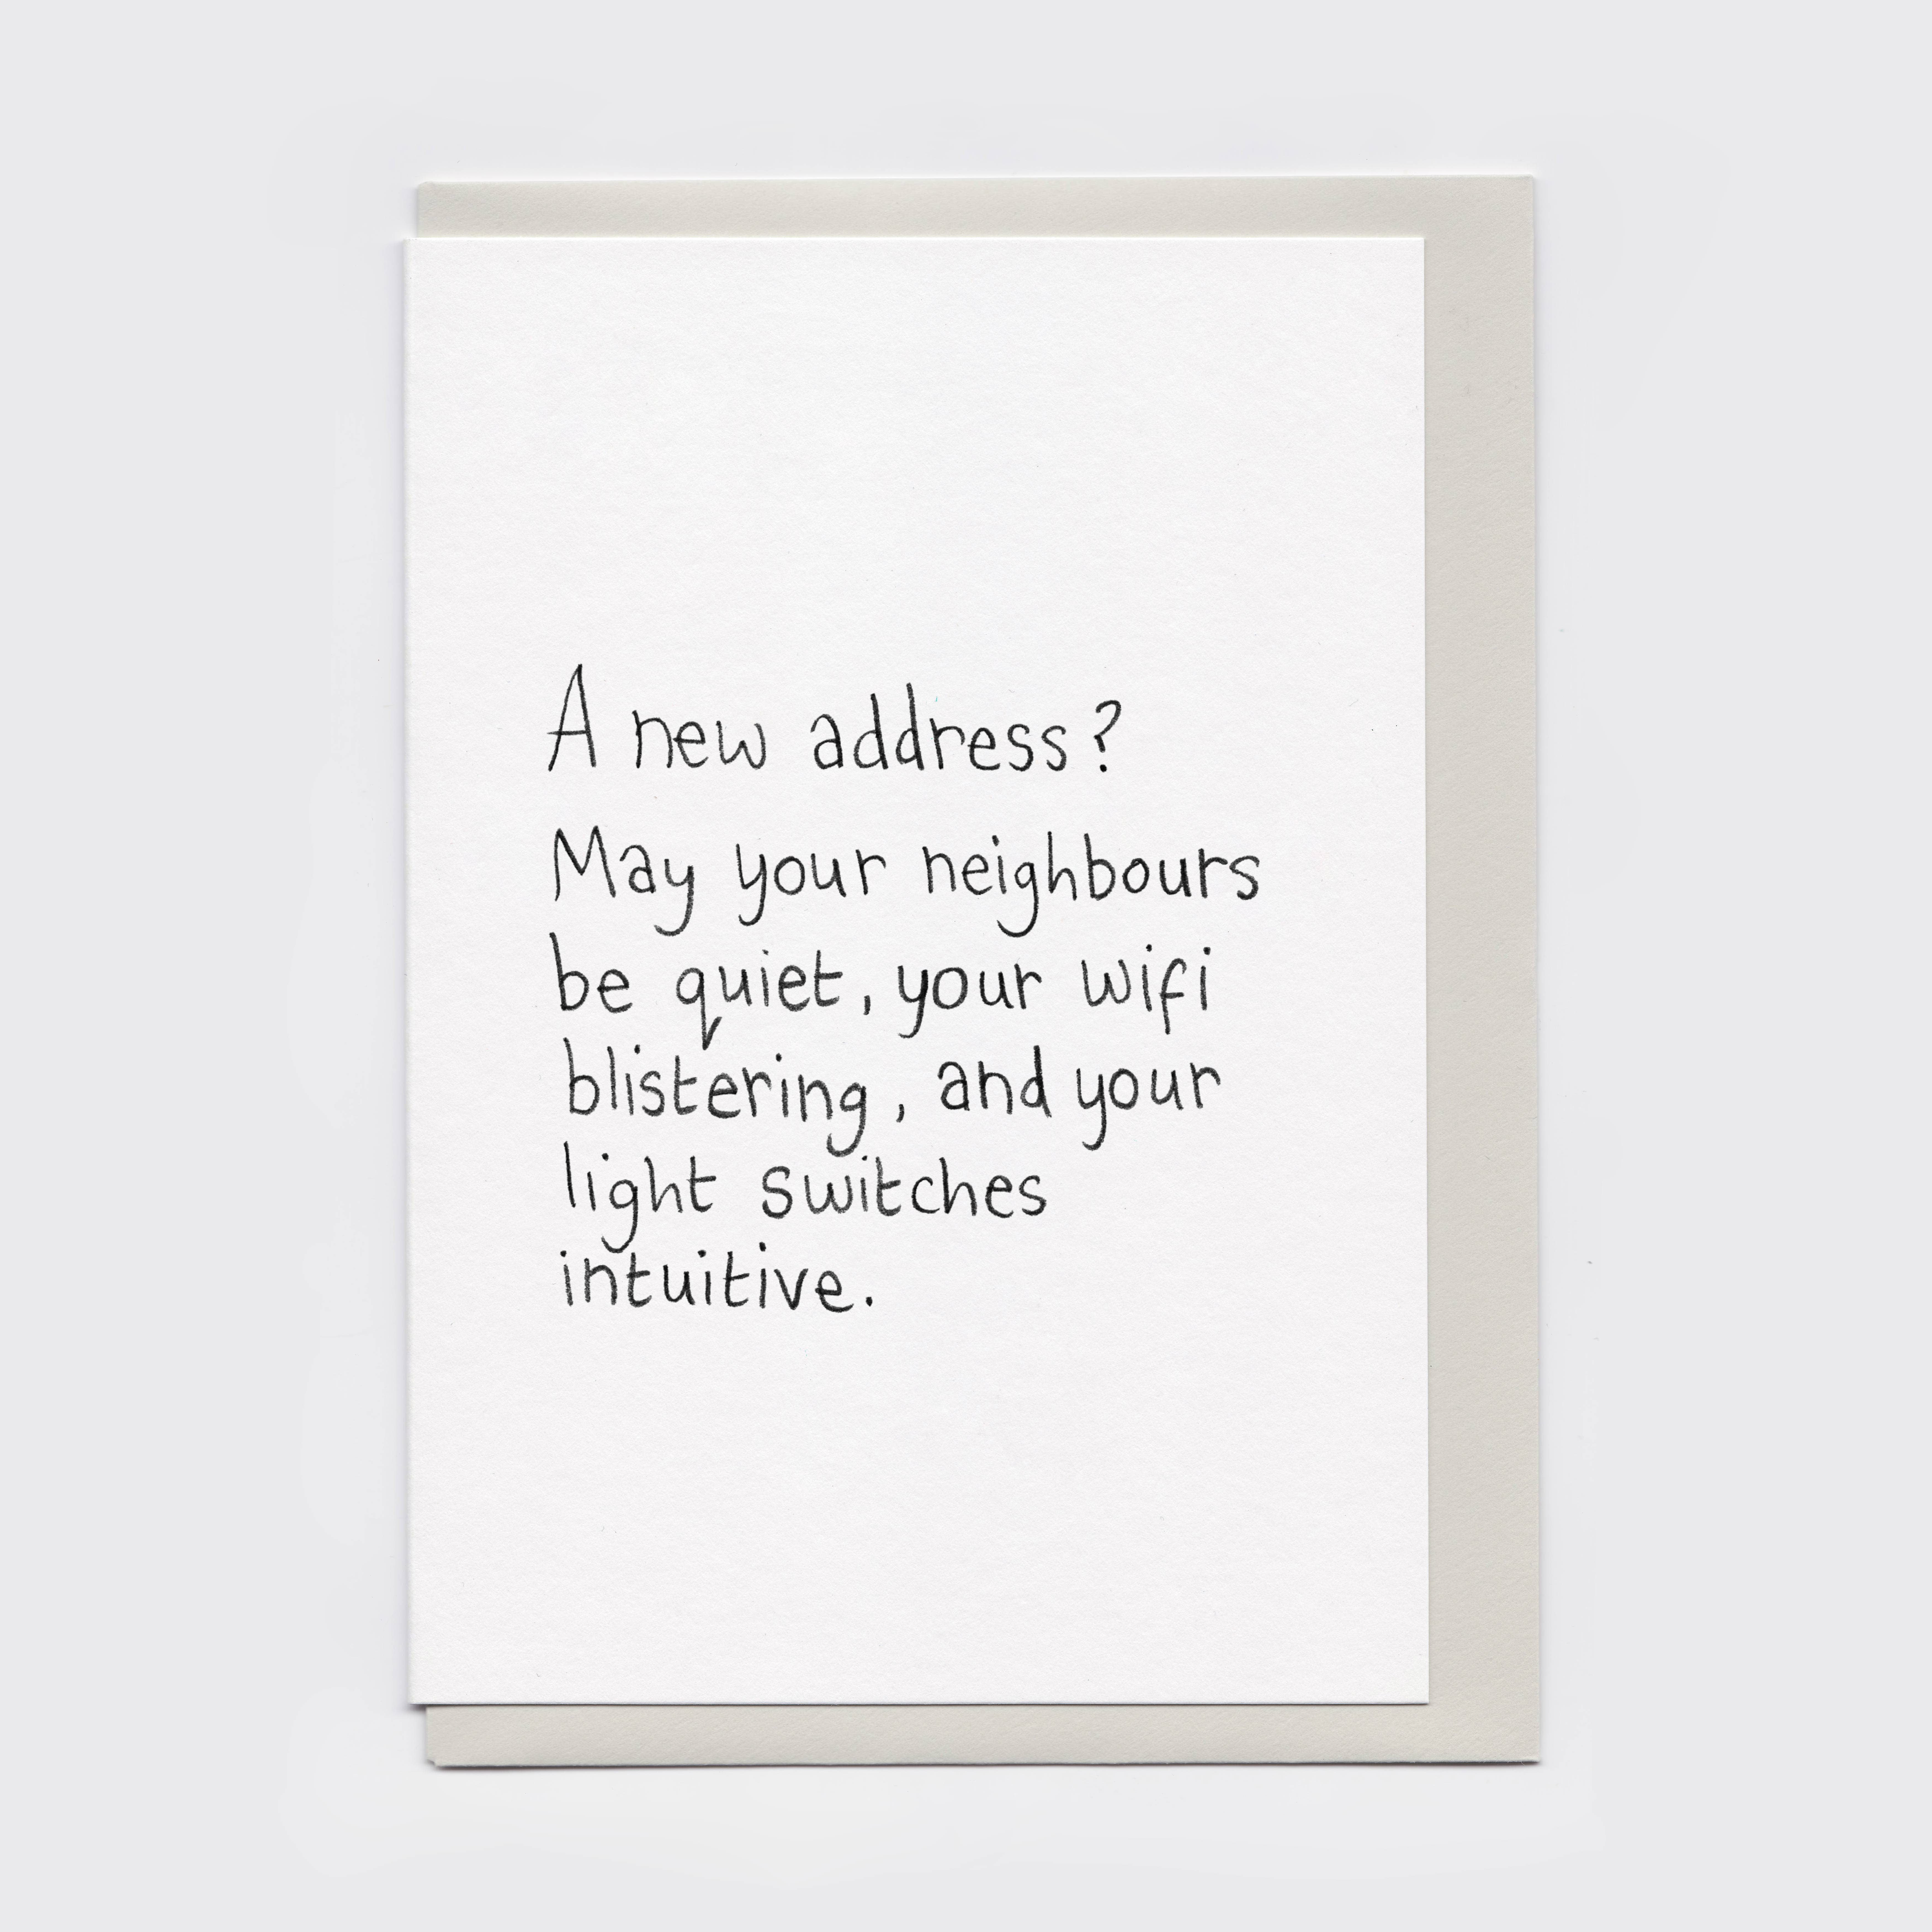 A new address?
May your neighbours
be quiet, your wifi
blistering, and your
light switches
intuitive.